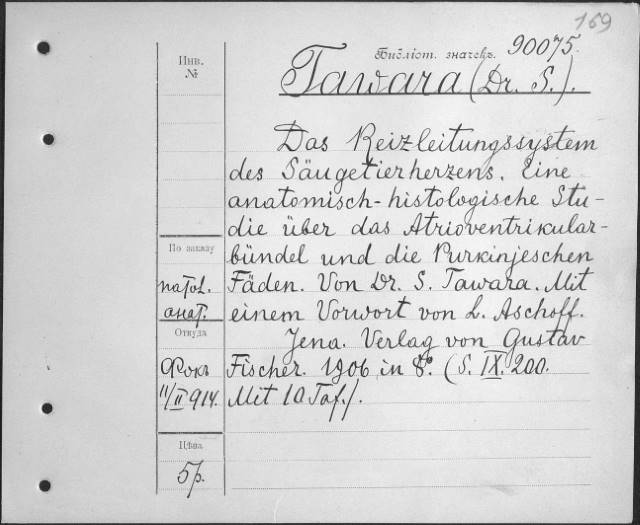 169
Библіот. значекъ. 90075.
Tawara (Dr. S.).
Инв.
№
Das Reizleitungssystem
des Säugetierherzens. Eine
anatomisch-histologische Stu-
die über das Atrioventrikular-
bündel und die Purkinjeschen
Fäden. Von Dr. S. Tawara. Mit
einem Vorwort von L. Aschoff.
Jena. Verlag von Gustav
Fischer. 1906 in 8°. (S. IX. 200.
Mit 10 Taf.).
По заказу
патол.
анат.
Откуда
Фокъ
11/II 914.
Цѣна
5р.